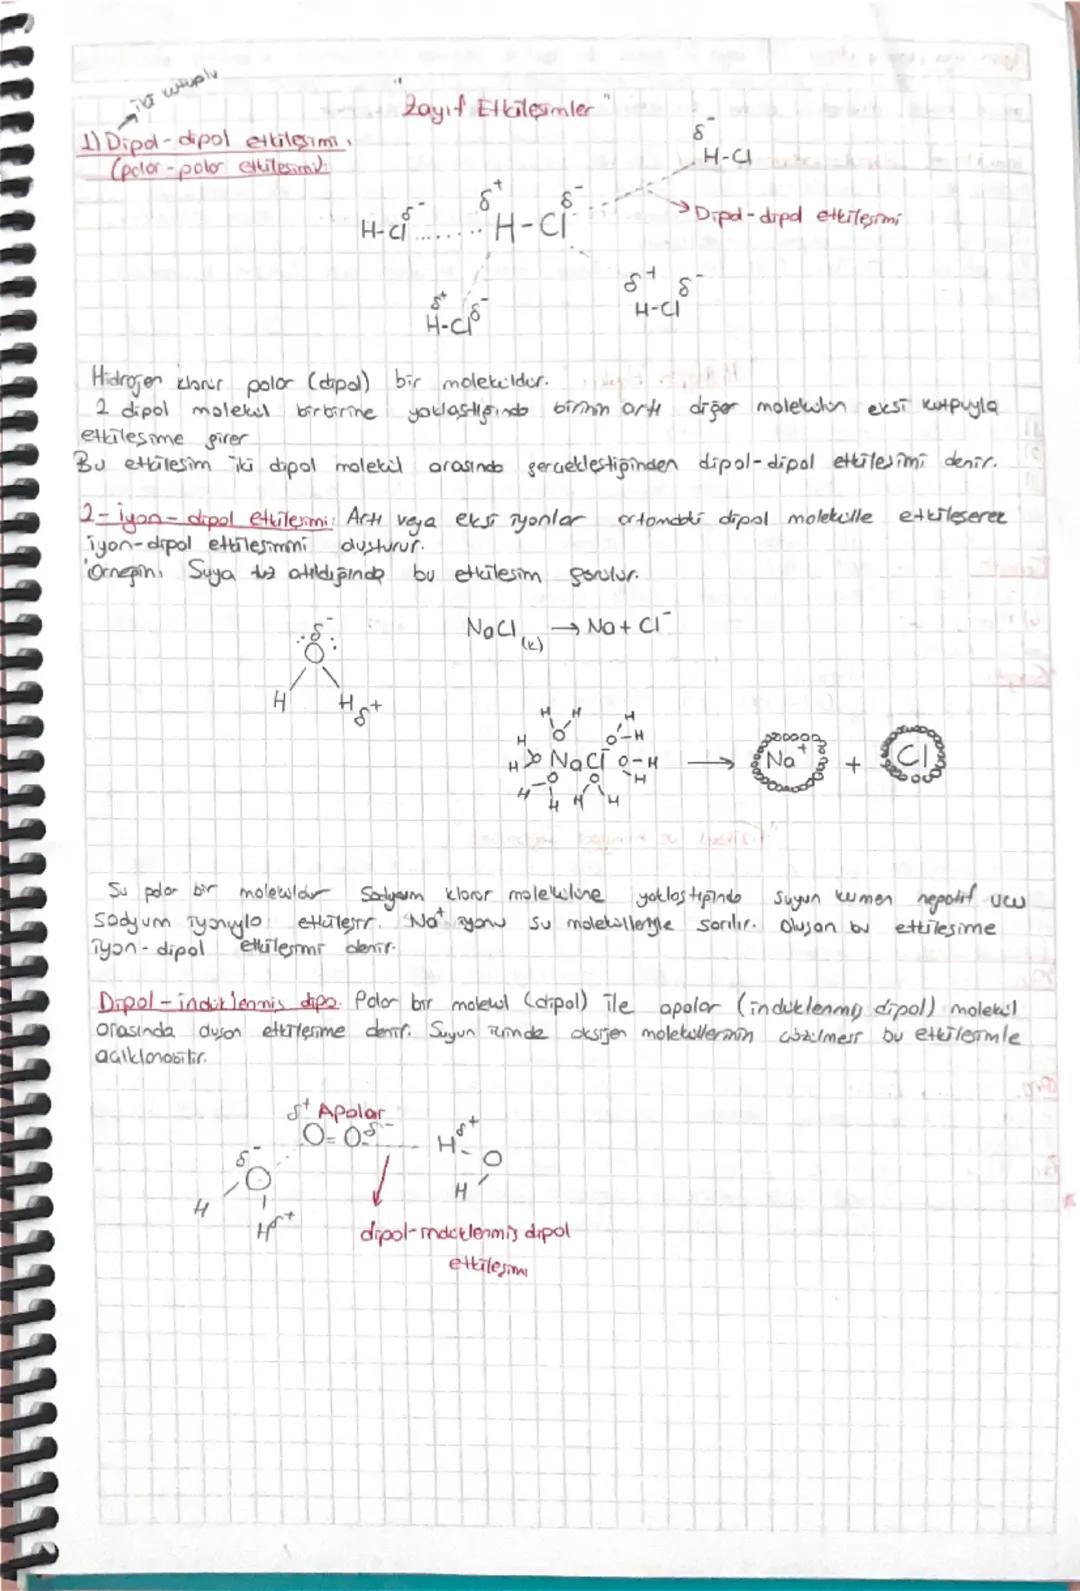 iki kutuplu
"Zayıf Etkileşimler"
1) Dipol-dipol etkileşimi:
(polar-polar etkileşimi):
δ-
H-Cl
δ-
H-Cl
δ+ δ-
H-Cl
→ Dipol-dipol etkileşimi
δ+ δ-
H-Cl
δ+ δ-
H-Cl
Hidrojen klorür polar (dipol) bir moleküldür.
2 dipol molekül birbirine yaklaştığında birinin artı diğer molekülün eksi kutpuyla
etkileşime girer
Bu etkileşim iki dipol molekül arasında gerçekleştiğinden dipol-dipol etkileşimi denir.
2- iyon-dipol etkileşimi: Artı veya eksi iyonlar ortamdaki dipol molekülle etkileşerek
iyon-dipol etkileşimini oluşturur.
Örneğin; Suya tuz atıldığında bu etkileşim görülür.
δ-
O
H H
δ+
NaCl(k) → Na + Cl-
H H H
O O-H
H
H O NaCl O-H
O O H
H H H H
→ Na+ + Cl
Su polar bir moleküldür Sodyum klorür molekülüne yaklaştığında suyun kısmen negatif ucu
sodyum iyonuyla etkileşir. Na+ iyonu su molekülleriyle sarılır. Oluşan bu etkileşime
iyon-dipol etkileşimi denir.
Dipol-indüklenmiş dipo: Polar bir molekül (dipol) ile apolar (indüklenmiş dipol) molekül
arasında oluşan etkileşime denir. Suyun içinde oksijen moleküllerinin çözülmesi bu etkileşimle
açıklanabilir.
δ+ Apolar
O=O δ-
H δ+
O
H
δ-
O
H
H δ+
dipol-indüklenmiş dipol
etkileşimi